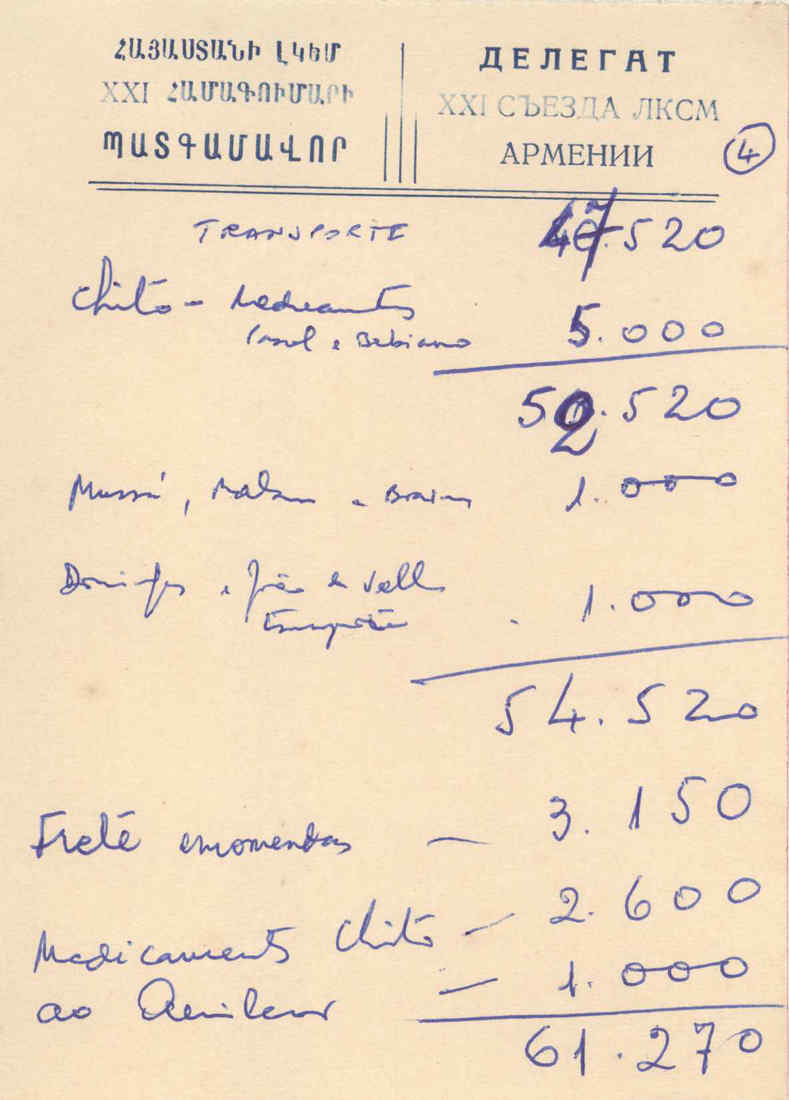 ՀԱՅԱՍՏԱՆԻ ԼԿԵՄ
XXI ՀԱՄԱԳՈՒՄԱՐԻ
ՊԱՏԳԱՄԱՎՈՐ
ДЕЛЕГАТ
XXI СЪЕЗДА ЛКСМ
АРМЕНИИ
4
TRANSPORTE 47.520
Chico - Medicamentos
e Bebiano 5.000
52.520
Mussá, Malam e 1.000
Domingos e João de
1.000
54.520
Frete encomendas — 3.150
Medicaments Chico — 2.600
ao — 1.000
61.270